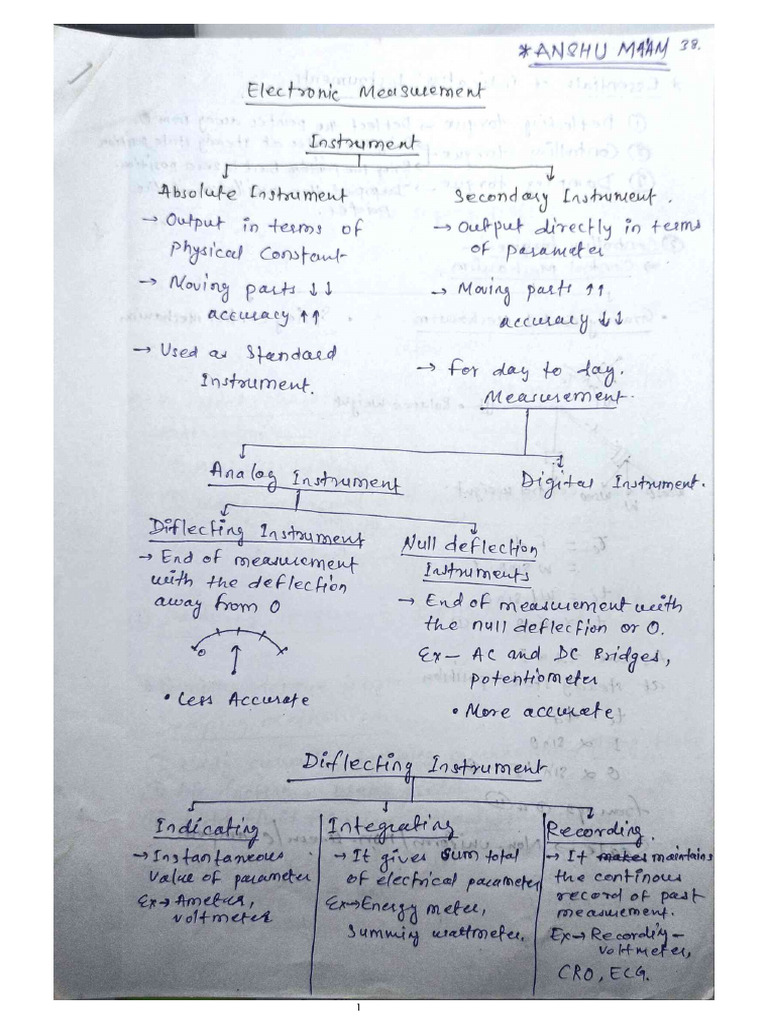 *ANSHU MA'AM 38.
Electronic Measurement
Instrument
Absolute Instrument
→ Output in terms of
Physical Constant
→ Moving parts ↓↓
accuracy ↑↑
→ Used as Standard
Instrument.
Secondary Instrument.
→ Output directly in terms
of parameter
→ Moving parts ↑↑
accuracy ↓↓
→ For day to day.
Measurement.
Analog Instrument
Digital Instrument.
Diflecting Instrument
→ End of measurement
with the deflection
away from 0
0
• Less Accurate
Null deflection
Instruments
→ End of measurement with
the null deflection or 0.
Ex – AC and DC Bridges,
potentiometer
• More accurate
Diflecting Instrument
Indicating
→ Instantaneous
value of parameter
Ex→ Ameter,
voltmeter
Integrating
→ It gives sum total
of electrical parameter
Ex→ Energy meter,
Summing wattmeter.
Recording.
→ It makes maintains
the continous
record of past
measurement.
Ex→ Recording-
voltmeter,
CRO, ECG.
1